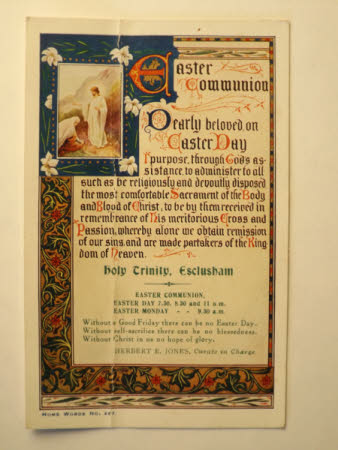 Easter
Communion
Dearly beloved, on
Easter Day
I purpose, through Gods as-
sistance, to administer to all
such as be religiously and devoutly disposed
the most comfortable Sacrament of the Body
and Blood of Christ, to be by them received in
remembrance of His meritorious Cross and
Passion, whereby alone we obtain remission
of our sins, and are made partakers of the King
dom of Heaven.
Holy Trinity, Esclusham
EASTER COMMUNION.
EASTER DAY 7.30, 8.30 and 11 a.m.
EASTER MONDAY - - 9.30 a.m.
Without a Good Friday there can be no Easter Day.
Without self-sacrifice there can be no blessedness.
Without Christ in us no hope of glory.
HERBERT E. JONES, Curate in Charge.
HOME WORDS No.